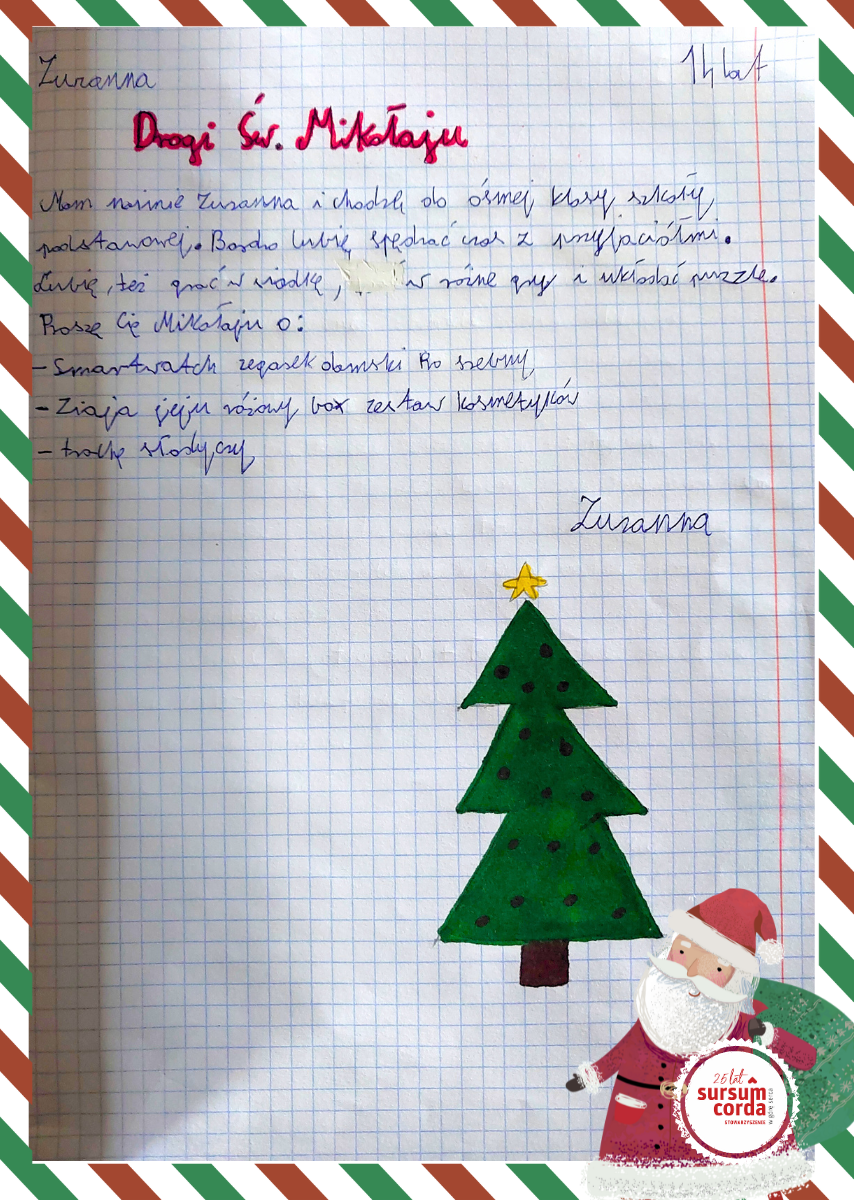 Zuzanna
14 lat
Drogi Św. Mikołaju
Mam na imię Zuzanna i chodzę do ósmej klasy szkoły
podstawowej. Bardzo lubię spędzać czas z przyjaciółmi.
Lubię, też grać w siatkę, w różne gry i układać puzzle.
Proszę Cię Mikołaju o:
- Smartwatch zegarek damski Pro srebrny
- Ziaja jeju różowy box zestaw kosmetyków
- trochę słodyczy
Zuzanna
26 lat
sursum
corda
STOWARZYSZENIE
w górę serca